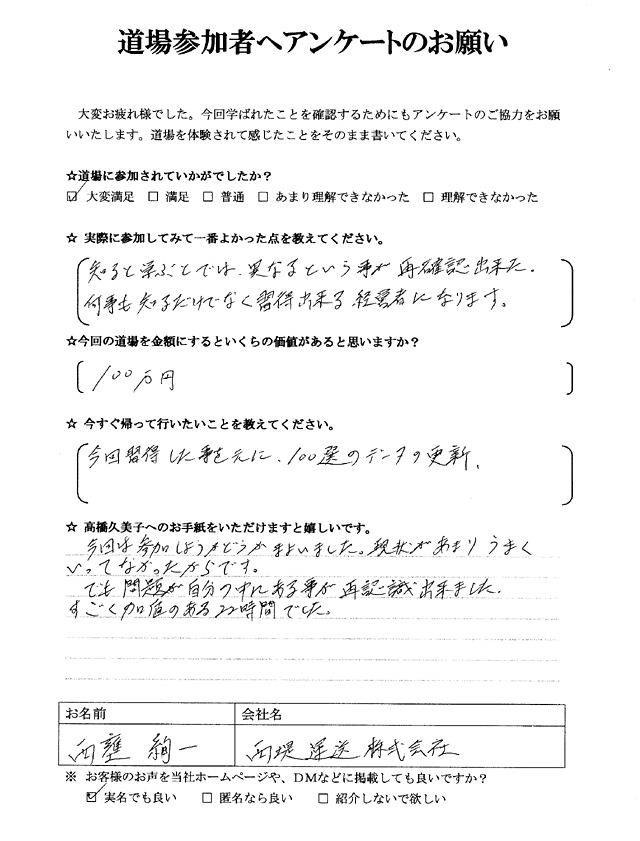 道場参加者へアンケートのお願い
大変お疲れ様でした。今回学ばれたことを確認するためにもアンケートのご協力をお願
いいたします。道場を体験されて感じたことをそのまま書いてください。
☆道場に参加されていかがでしたか?
☑ 大変満足 □ 満足 □ 普通 □ あまり理解できなかった □ 理解できなかった
☆ 実際に参加してみて一番よかった点を教えてください。
知ると学ぶとでは、異なるという事が再確認出来た。
何事も知るだけでなく習得出来る経営者になります。
☆今回の道場を金額にするといくらの価値があると思いますか?
100万円
☆ 今すぐ帰って行いたいことを教えてください。
今回習得した事を元に、100選のデータの更新、
☆ 高橋久美子へのお手紙をいただけますと嬉しいです。
今回は参加しようかどうかまよいました。現状があまりうまく
いってなかったからです。
でも問題が自分の中にある事が再認識出来ました。
すごく価値のある22時間でした。
お名前 会社名
西 絢一 西堤運送株式会社
※ お客様のお声を当社ホームページや、DMなどに掲載しても良いですか?
☑ 実名でも良い □ 匿名なら良い □ 紹介しないで欲しい